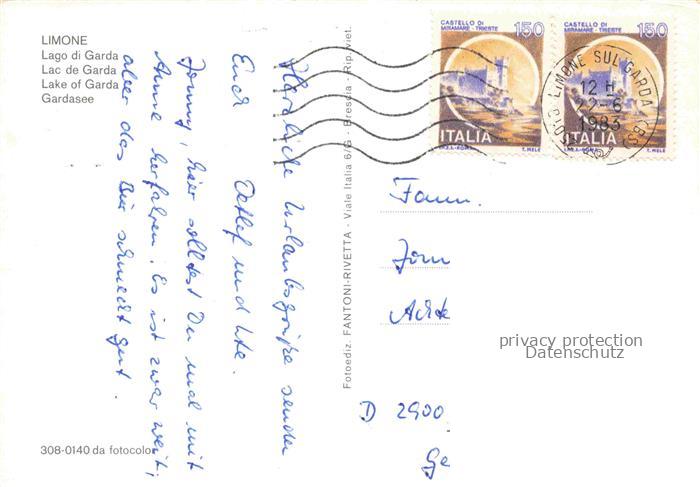 LIMONE
Lago di Garda
Lac de Garda
Lake of Garda
Gardasee
Herzliche Urlaubsgrüße senden
Euch Detlef und Ute.
Jonny, hier solltest Du mal mit
Anne herfahren. Es ist zwar weit,
aber das Bier schmeckt gut.
308-0140 da fotocolor
Fotoediz. FANTONI-RIVETTA - Viale Italia 6/G - Brescia - Rip. viet.
CASTELLO DI
MIRAMARE - TRIESTE
150
ITALIA
I.P.Z.S. - ROMA
T. MELE
CASTELLO DI
MIRAMARE - TRIESTE
150
ITALIA
I.P.Z.S. - ROMA
T. MELE
LIMONE SUL GARDA (BS)
12 H
22-6
1983
Fam.
D 2900
privacy protection
Datenschutz